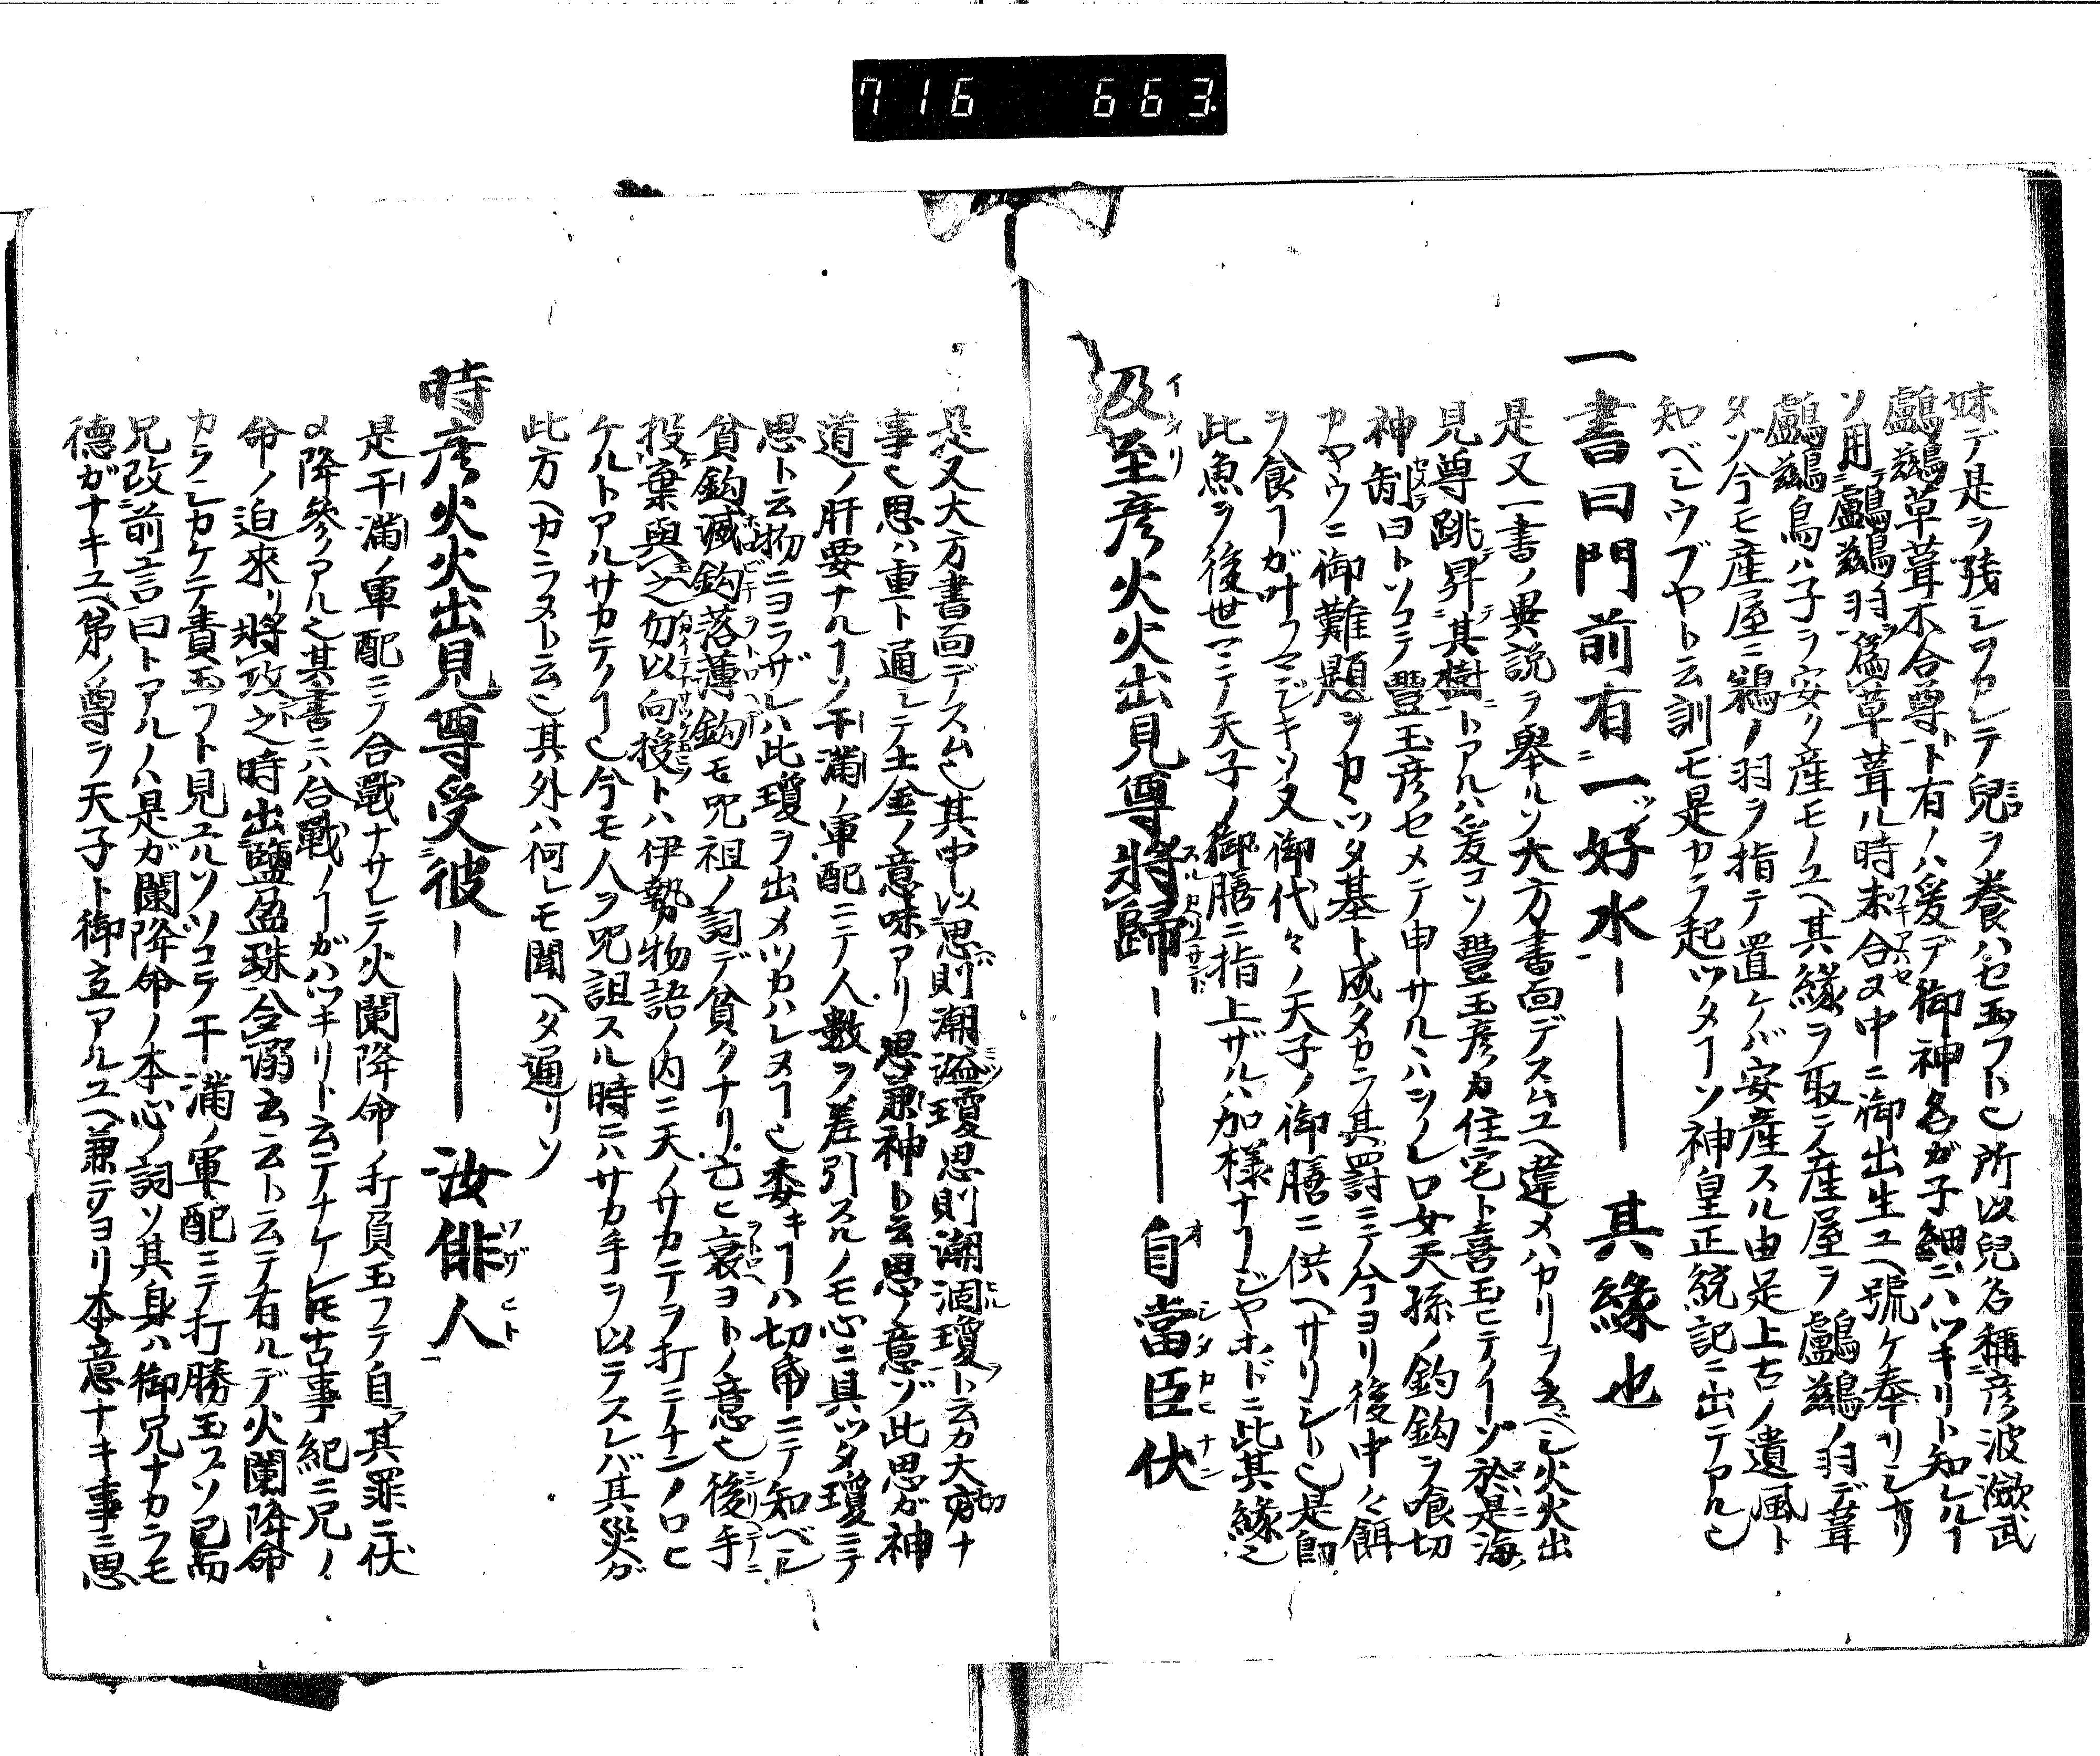 716 663
妹デ是ヲ残シヲカレテ兒ヲ養ハセ玉フト也所以兒名稱彦波瀲武
鸕鶿草葺不合尊ト有ノハ爰デ御神名ガ子細ニハツキリト知レルヿ
ソ用鸕鶿羽爲草葺ル時未合又中ニ御出生ユヘ號ケ奉リシナリ
鸕鶿鳥ハ子ヲ安ク産モノユヘ其縁ヲ取テ産屋ヲ鸕鶿ノ羽デ葺
タゾ今モ産屋ニ鵜ノ羽ヲ指テ置ケバ安産スル由足上古ノ遺風ト
知ベシウブヤト云訓モ是カラ起ツタヿソ神皇正統記ニ出テアル也
一書曰門前有一好水―――其縁也
是又一書ノ異説ヲ擧ルソ大方書面デスムユヘ違メハカリヲ云ベシ火火出
見尊跳昇其樹トアルハ爰コソ豐玉彦カ住宅ト喜玉ヒテノヿゾ於是海
神制曰トソコテ豐玉彦セメテ申サルハシレ口女天孫ノ釣鈎ヲ喰切
カヤウニ御難題ヲカヽツタ基ト成タカラ其罸ニテ今ヨリ後中々餌
ヲ食ヿガ叶フマジキソ又御代々ノ天子ノ御膳ニ供ヘサリシト也是即
此魚ヲ後世マテ天子ノ御膳ニ指上ザルハ加様ナヿジヤホドニ此其縁也
及至彦火火出見尊將歸―――自當臣伏
是又大方書面デスム也其中以思則潮溢瓊思則潮涸瓊ト云カ大切ナ
事也思ハ重ト通シテ土金ノ意味アリ思兼神ト云思ノ意ゾ此思ガ神
道ノ肝要ナルヿソ干滿ノ軍配ニテ人數ヲ差引スルノモ心ニ具ツタ瓊ニテ
思ト云物ニヨラザレハ此瓊ヲ出メツカハレヌヿ也委キヿハ切帋ニテ知ベシ
貧鈎滅鈎落薄鈎モ咒祖ノ詞デ貧クナリ亡ヒ衰ヨトノ意也後手
投棄與之勿以向授トハ伊勢物語ノ内ニ天ノサカテヲ打テナンノロヒ
ケルトアルサカテノヿ也今モ人ヲ咒詛スル時ニハサカ手ヲ以テスレバ其災ガ
此方ヘカニラヌト云也其外ハ何レモ聞ヘタ通リソ
時彦火火出見尊受彼―――汝俳人
是干滿ノ軍配ニテ合戰ナサレテ火闌降命ノ打負玉フテ自其罪ニ伏
〆降參ノアル也其書ニハ合戰ノヿガハツキリト云テナケレ𪜈古事紀ニ兄ノ
命ノ迫來リ將攻之時出鹽盈珠令溺云云ト云テ有ルデ火闌降命
カラシカケテ責玉フト見ユルソソコテ干滿ノ軍配ニテ打勝玉フソ已而
兄改前言曰トアルノハ是ガ闌降命ノ本心ノ詞ソ其身ハ御兄ナカラモ
德ガナキユヘ弟ノ尊ヲ天子ト御立アルユヘ兼テヨリ本意ナキ事ニ思